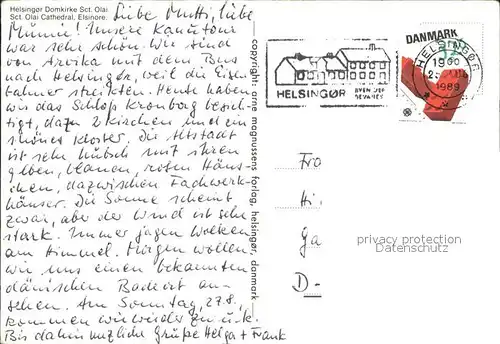 Helsingør Domkirke Sct. Olai
Sct. Olai Cathedral, Elsinore.
Liebe Mutti, liebe
Mimmi! Unsere Kanutour
war sehr schön. Wir sind
von Arvika mit dem Bus
nach Helsingør, weil die Eisen-
bahner streikten. Heute haben
wir das Schloß Kronborg besich-
tigt, dazu 2 Kirchen und ein
schönes Kloster. Die Altstadt
ist sehr hübsch mit ihren
gelben, blauen, roten Häus-
chen, dazwischen Fachwerk-
häuser. Die Sonne scheint
zwar, aber der Wind ist sehr
stark. Immer jagen Wolken
am Himmel. Morgen wollen
wir uns einen bekannten
dänischen Badeort an-
sehen. Am Sonntag, 27.8.,
kommen wir wieder zurück.
Bis dahin herzliche Grüße Helga + Frank
copyright: arne magnussens forlag, helsingør, danmark
HELSINGØR
BYEN DER
BEVARES
DANMARK
HELSINGØR
1989
Fra
Hi
Ga
D-
privacy protection
Datenschutz